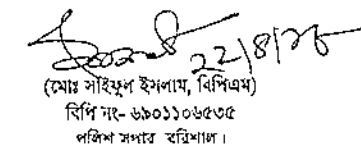 ২২/৪/২৬
(মোঃ সাইফুল ইসলাম, বিপিএম)
বিপি নং- ৬৯০১১০৬৫৩৫
পুলিশ সুপার, বরিশাল।